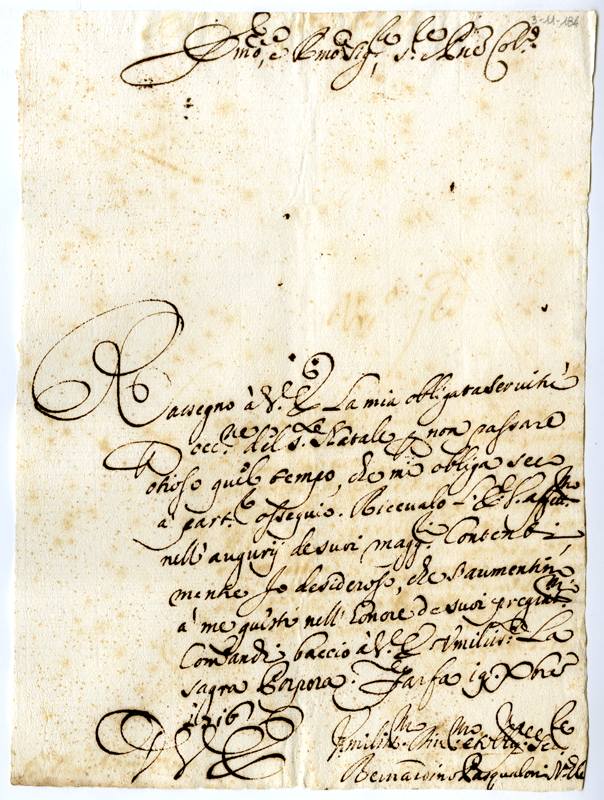 3-11-184
Em̃o, e Rm̃o Sig.re, S.re Pñe Col.mo
Rassegno à V.E. La mia obbligata servitù
occ.ne del S. Natale p non passare
otioso quel tempo, che mi obliga
a part.e ossequio. Ricevalo
nell'augurij de suoi magg.ri Contenti,
mentre Io desideroso, che s'aumentin
à me questi nell'honore de suoi pregiat.mi
Comandi; baccio à V.E. Umilis.te La
sagra Porpora. Farfa 19. Xbre
1716
V E
Umiliss.mo Div.mo et Obl.
Bernardino Pasqualoni